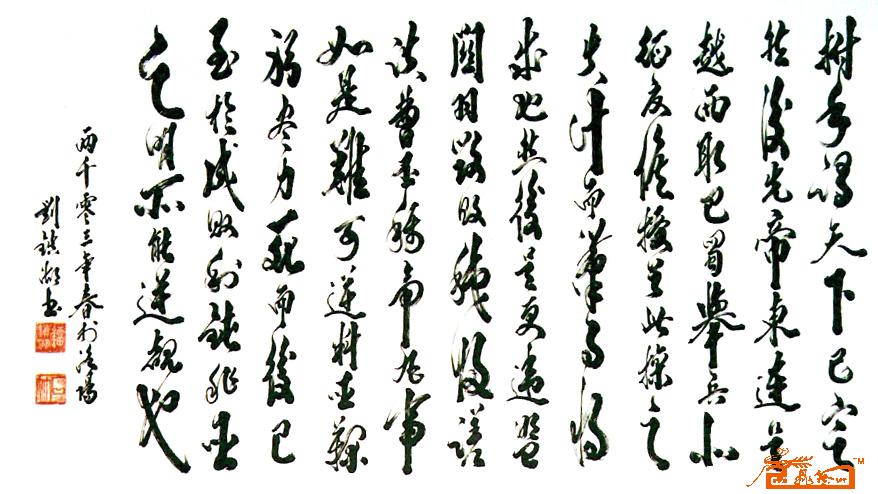 拊手謂天下已定
然後先帝東連吳
越西取巴蜀舉兵北
征夏侯授首此操之
失計而漢事將
成也然後吳更違盟
關羽毀敗秭歸蹉
跌曹丕稱帝凡事
如是難可逆料臣鞠
躬尽力死而後已
至於成敗利鈍非臣
之明所能逆覩也
兩千零三年春於洛陽
劉鎮書